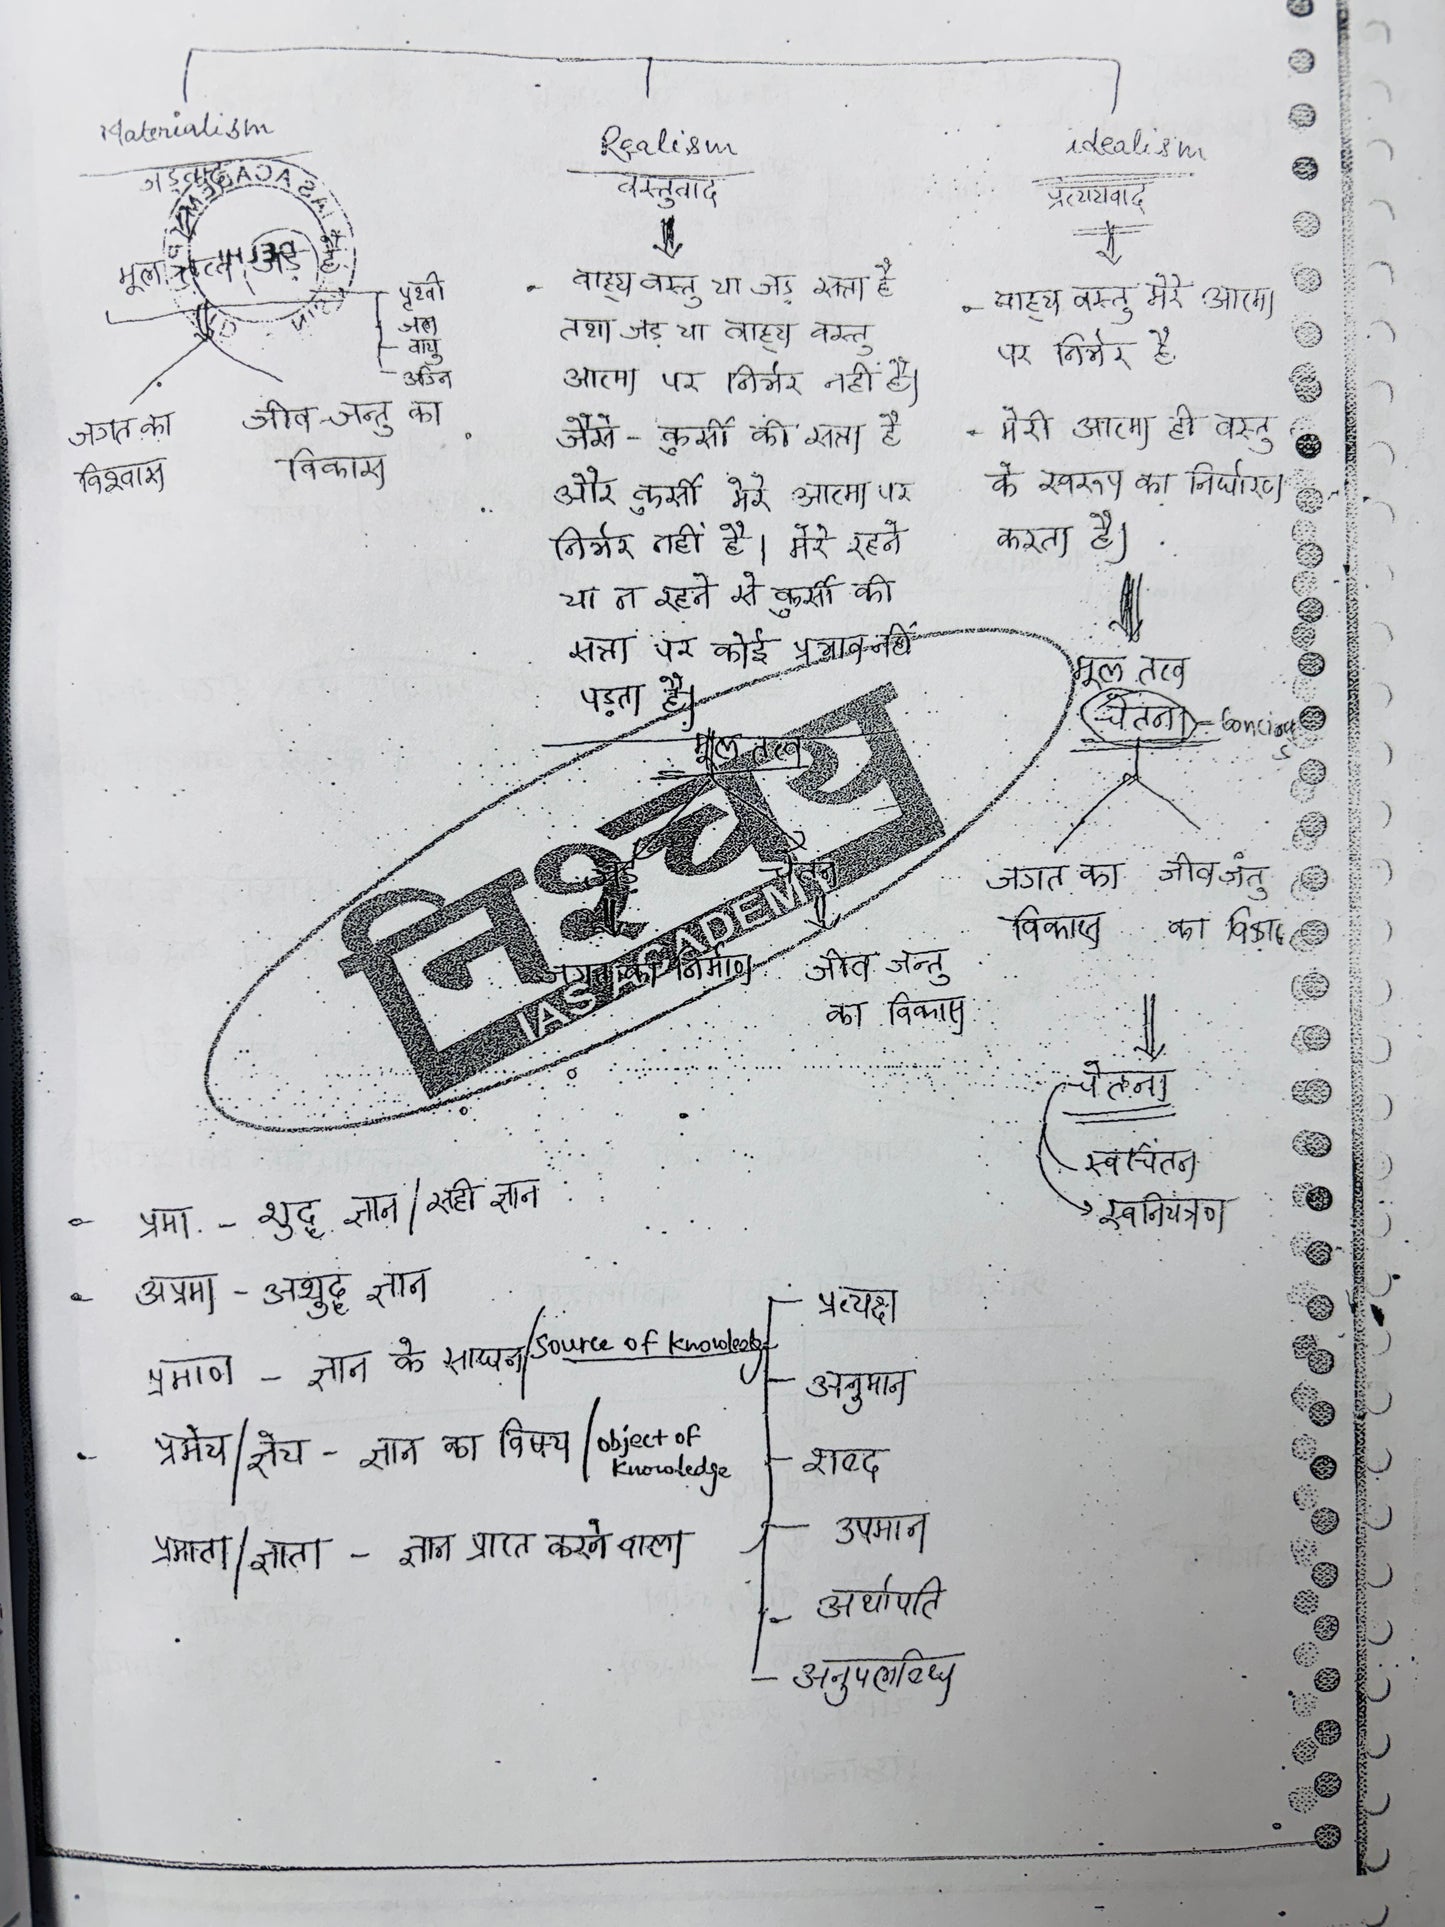 Materialism
जड़वाद
मूल तत्व जड़ है
पृथ्वी
जल
वायु
अग्नि
जगत का
विश्वास
जीव-जन्तु का
विकास
Realism
वस्तुवाद
वाह्य वस्तु या जड़ सत्ता है
तथा जड़ या वाह्य वस्तु
आत्मा पर निर्भर नहीं है।
जैसे - कुर्सी की सत्ता है
और कुर्सी मेरे आत्मा पर
निर्भर नहीं है। मेरे रहने
या न रहने से कुर्सी की
सत्ता पर कोई प्रभाव नहीं
पड़ता है।
मूल तत्व
जड़
चेतन
जगत का निर्माण
जीव जन्तु
का विकास
idealism
प्रत्ययवाद
- वाह्य वस्तु मेरे आत्मा
पर निर्भर है
- मेरी आत्मा ही वस्तु
के स्वरूप का निर्धारण
करता है।
मूल तत्व
चेतना
जगत का
विकास
जीव जंतु
का विकास
चेतना
स्वचिंतन
स्वनियंत्रण
निश्चय
IAS ACADEMY
प्रमा. - शुद्ध ज्ञान/सही ज्ञान
अप्रमा - अशुद्ध ज्ञान
प्रमाण - ज्ञान के साधन/Source of knowledge
प्रमेय/ज्ञेय - ज्ञान का विषय/object of
knowledge
प्रमाता/ज्ञाता - ज्ञान प्राप्त करने वाला
प्रत्यक्ष
अनुमान
शब्द
उपमान
अर्थापति
अनुपलब्धि